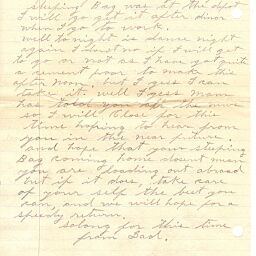 sleeping Bag was at the depot
I will go get it after diner
when I go to work.
well to night is dance night
again I dont no if I will get
to go or not as I have got quit
a cement pour to make this
after noon, but I guess I can
take it. well I guess mom
has told you all the news
so I will close for this
time hoping to hear from
you in the near future
and hope that your sleeping
Bag coming home dosent mean
you are loading out abroad
but if it does, take care
of your self the best you
can, and we will hope for a
speedy return.
so long for this time
from Dad.